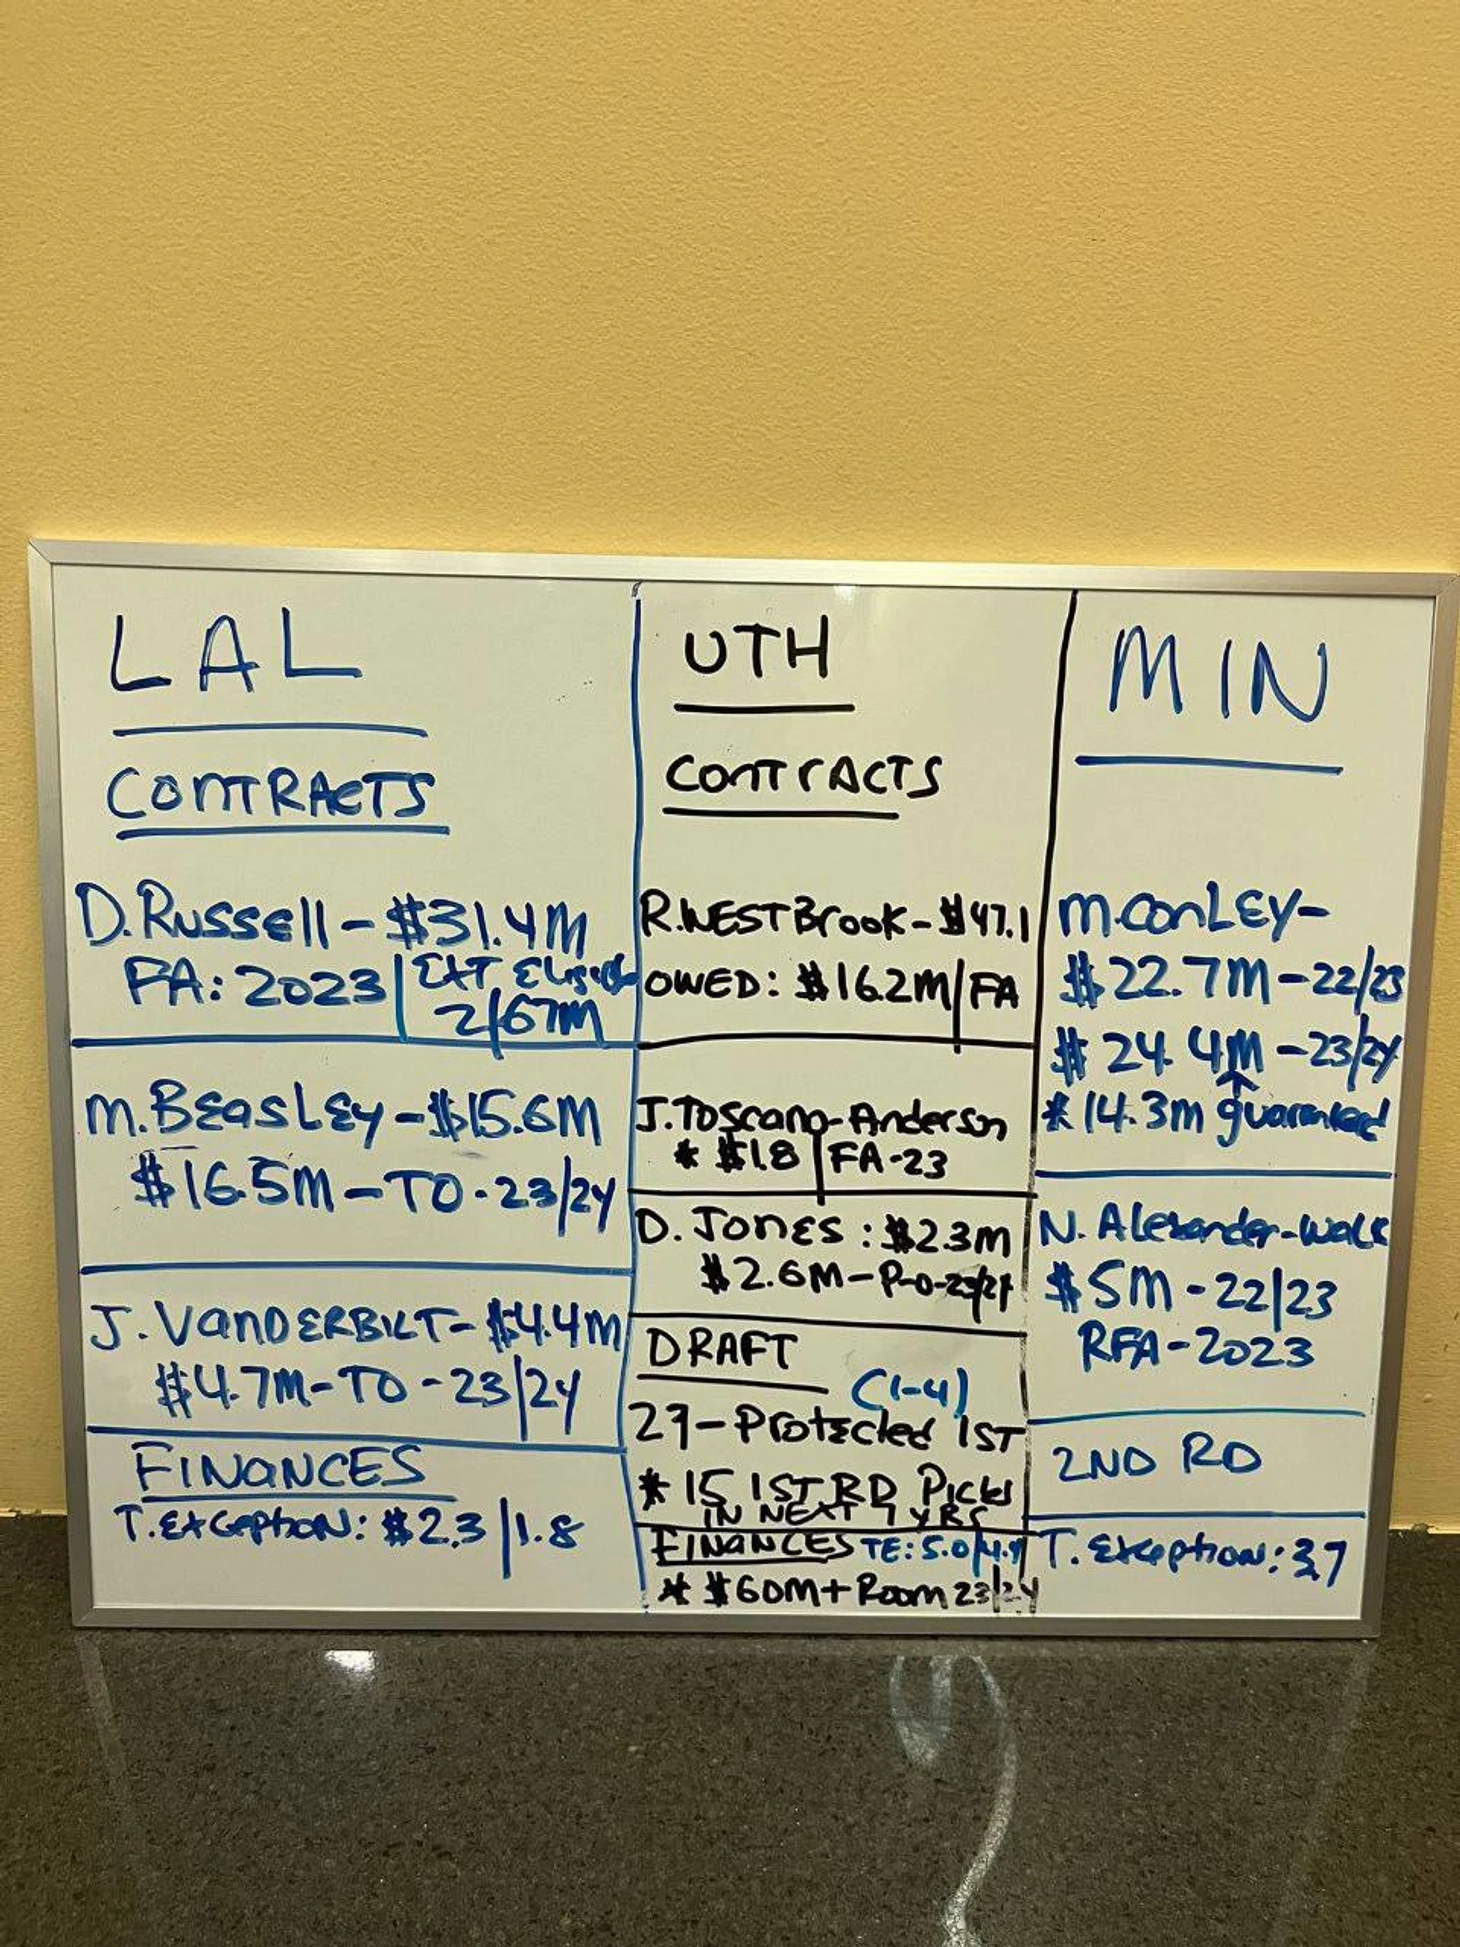 LAL
CONTRACTS
D. Russell - $31.4M
FA: 2023 | EXT. Eligible
2/67M
M. BEASLEY - $15.6M
$16.5M - TO - 23/24
J. VANDERBILT - $4.4M
$4.7M - TO - 23/24
FINANCES
T. Exception: $2.3 | 1.8
UTH
CONTRACTS
R. WESTBrook - $47.1
OWED: $16.2M | FA
J. Toscano-Anderson
* $1.8 | FA-23
D. JONES: $2.3M
$2.6M - P-O-23/24
DRAFT
(1-4)
27 - Protected 1ST
* 15 1ST RD Picks
IN NEXT 7 YRS
FINANCES TE: 5.0/4.9
* $60M + Room 23/24
MIN
M. CONLEY -
$22.7M - 22/23
$24.4M - 23/24
* 14.3M guaranteed
N. Alexander-Walk
$5M - 22/23
RFA - 2023
2ND RD
T. Exception: 3.7